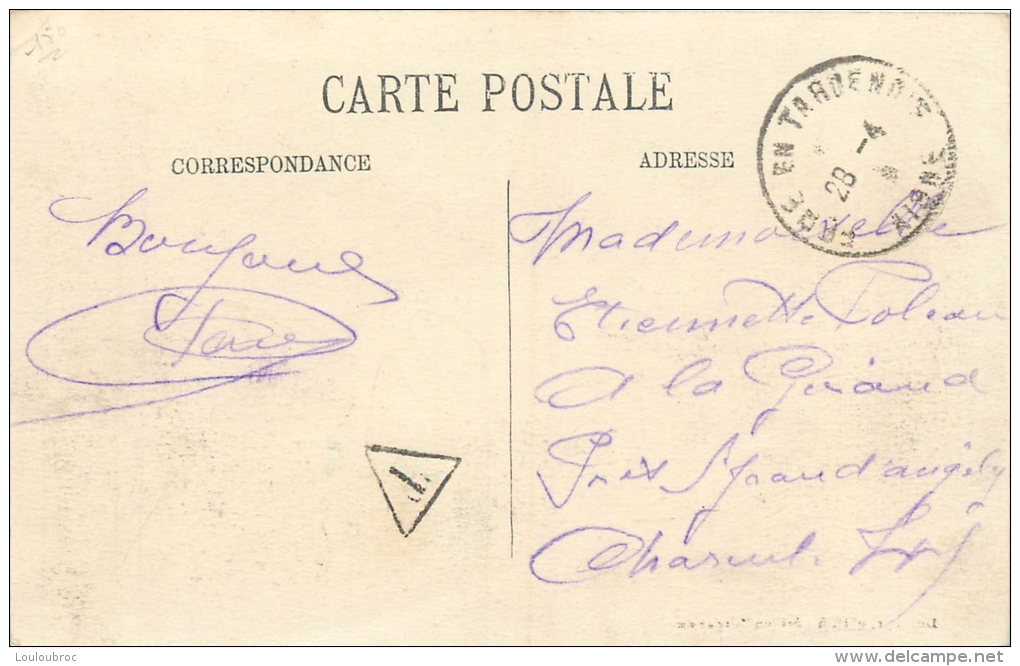 CARTE POSTALE
CORRESPONDANCE
ADRESSE
FÈRE EN TARDENOIS
28 -4
AISNE
Bonjour
Mademoiselle
Etiennette
A la Giraud
Près St Jean d'angély
Charente Infre
T
Louloubroc
delcampe.net